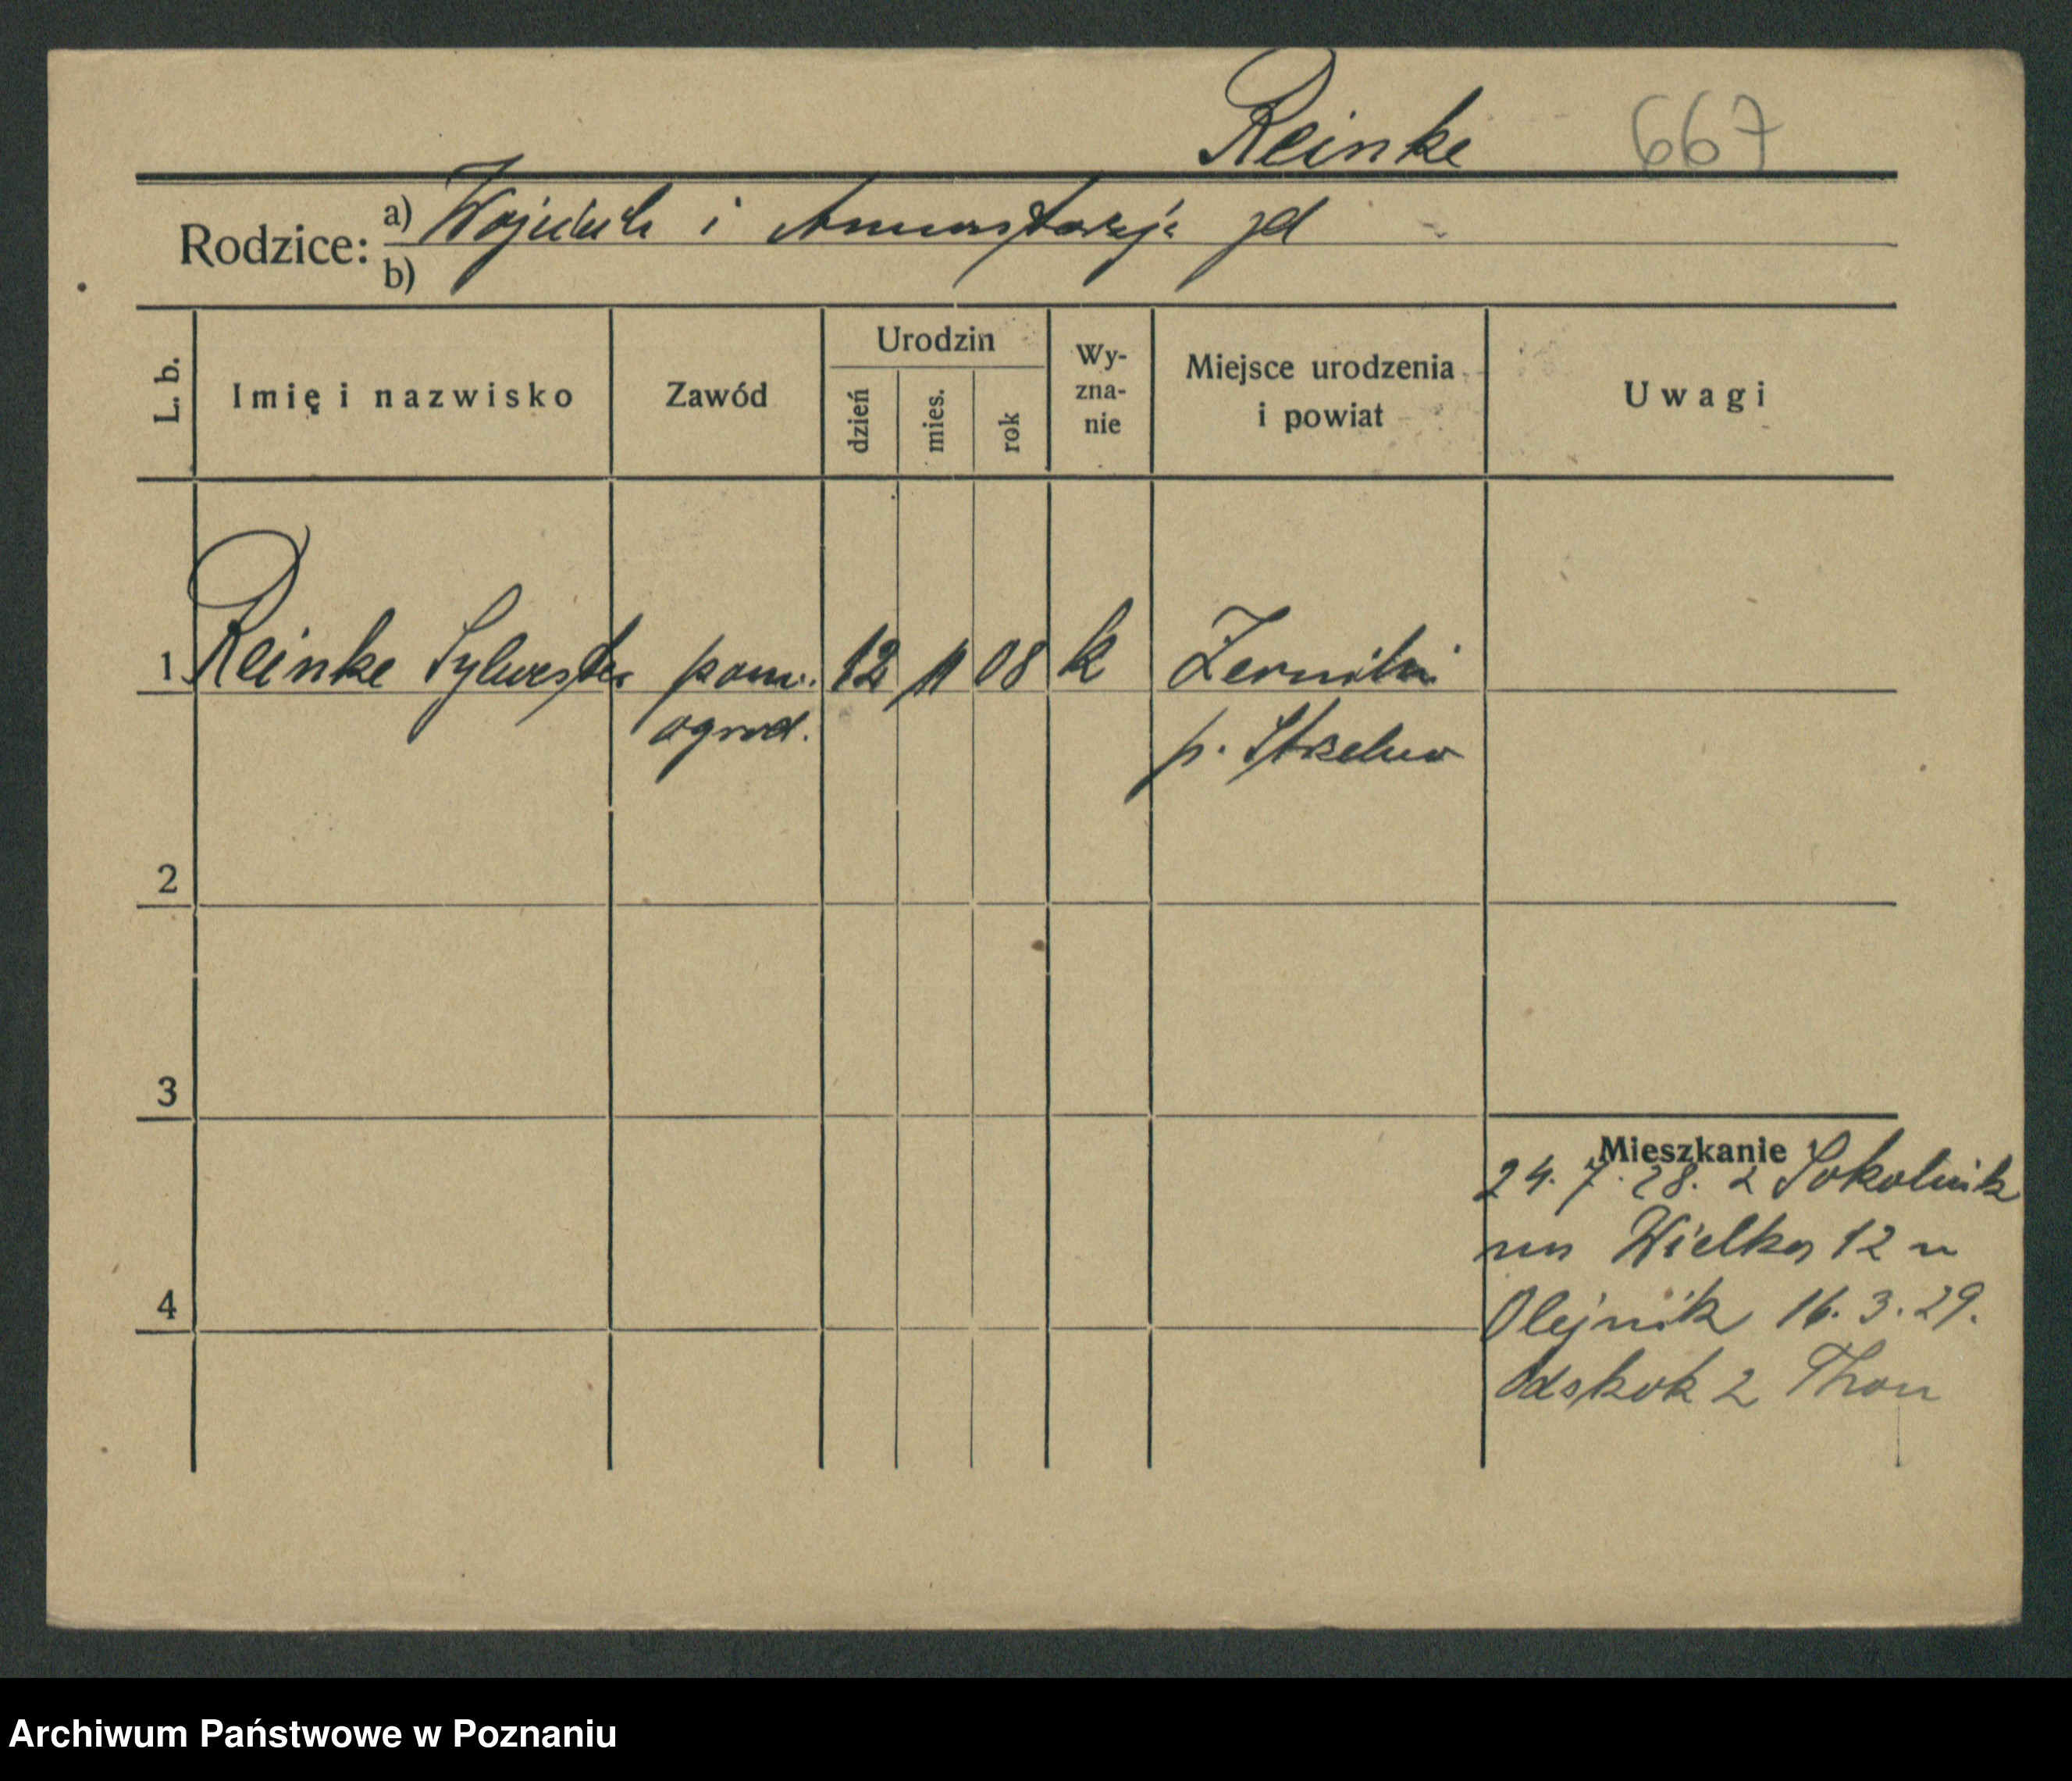 Reinke 667
Rodzice: a) Wojciech i Anastazja
b)
L. b. Imię i nazwisko Zawód Urodzin dzień mies. rok Wy-zna-nie Miejsce urodzenia i powiat Uwagi
1 Reinke Sylwester pom. 12 11 08 k Żerniki
ogrod. p. Strzelno
2
3
Mieszkanie
24. 7. 28. z Sokolnik
na Wielka 12 u
4
Olejnik 16. 3. 29.
Odskok 2 Thon
Archiwum Państwowe w Poznaniu